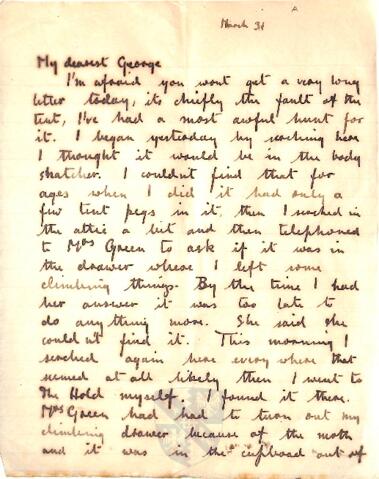 March 31
My dearest George
I'm afraid you wont get a very long
letter today, its chiefly the fault of the
tent, I've had a most awful hunt for
it. I began yesterday by serching here
I thought it would be in the body
snatcher. I couldnt find that for
ages when I did it had only a
few tent pegs in it, then I serched in
the attic a bit and then telephoned
to Mrs Green to ask if it was in
the drawer where I left some
climbing things. By the time I had
her answer it was too late to
do any thing more. She said she
could nt find it. This morning I
serched again here every where that
semed at all likely then I went to
the Hold myself. I found it there.
Mrs Green had had to turn out my
climbing drawer because of the moth
and it was in the cupboad out of